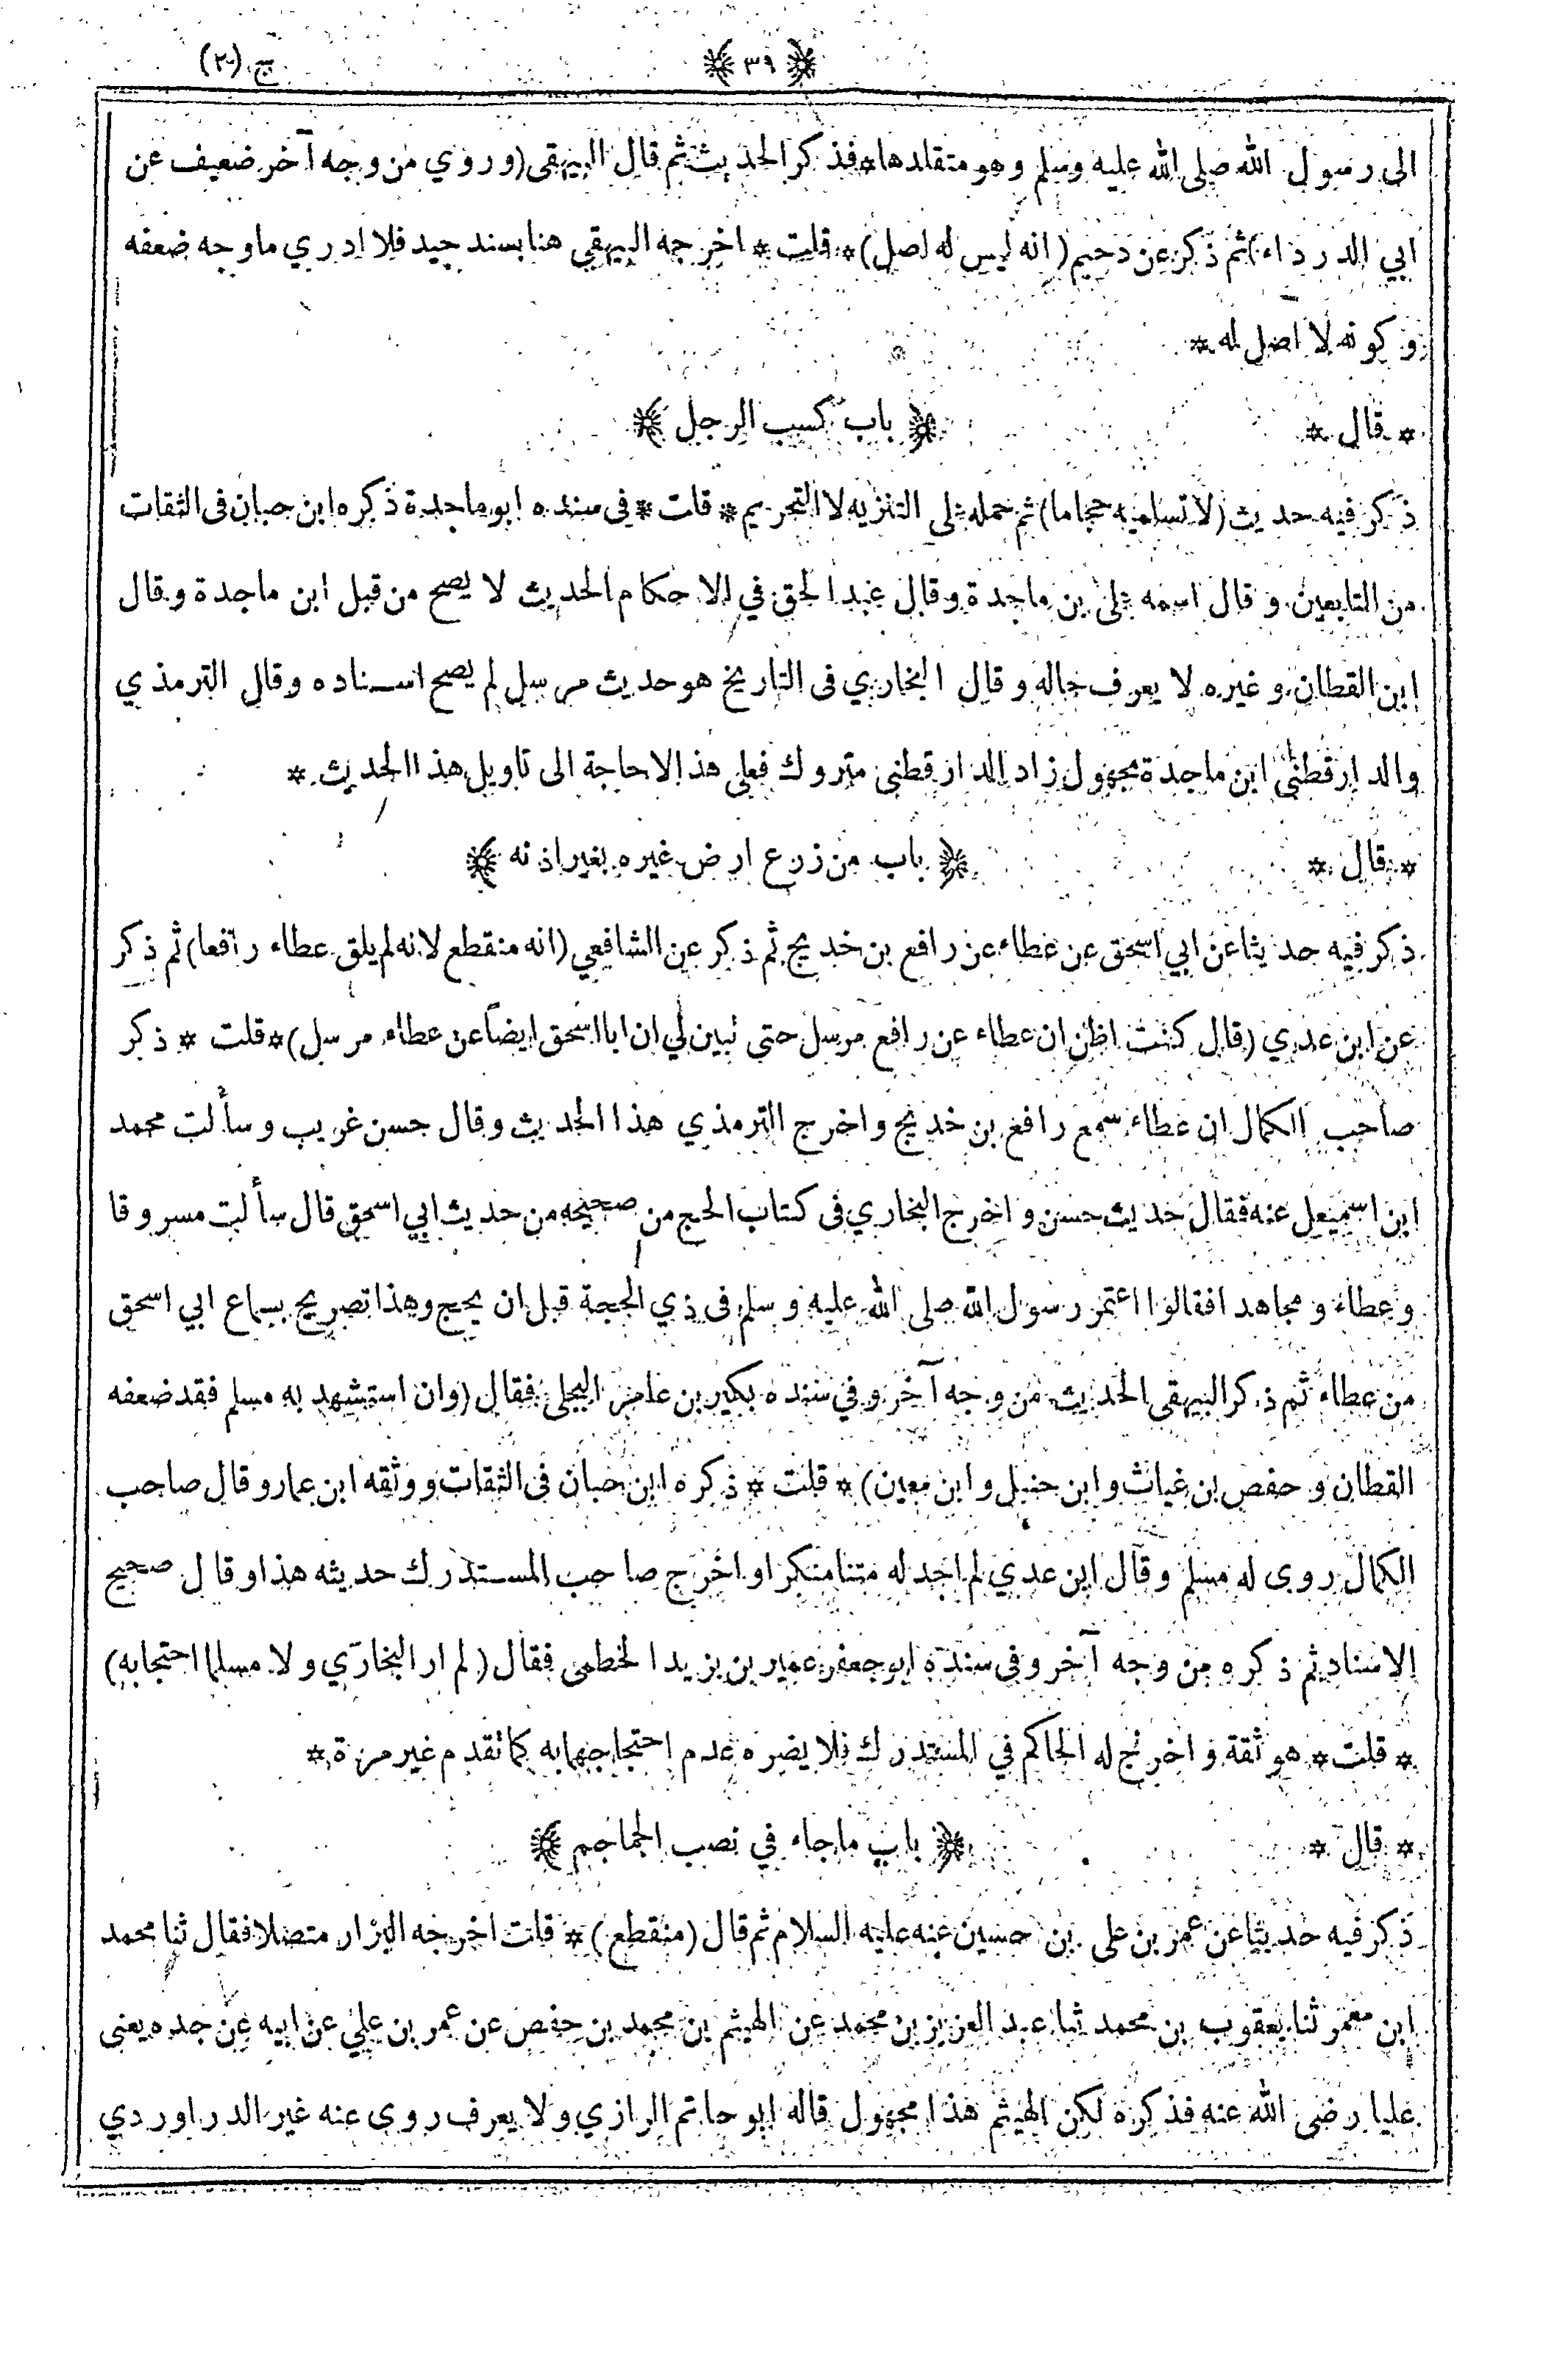 ﴿ ٣٩ ﴾ ج (٢)
الى رسول الله صلى الله عليه وسلم وهو متقلدها * فذكر الحديث ثم قال البيهقى (وروي من وجه آخر ضعيف عن
ابي الدرداء) ثم ذكر عن دحيم (انه ليس له اصل) * قلت * اخرجه البيهقي هنا بسند جيد فلا ادري ما وجه ضعفه
وكونه لا اصل له *
* قال * ﴿ باب كسب الرجل ﴾
ذكر فيه حديث (لا تسلميه حجاما) ثم حمله على التنزيه لا التحريم * قلت * فى سنده ابو ماجدة ذكره ابن حبان فى الثقات
من التابعين وقال اسمه على بن ماجدة وقال عبد الحق في الاحكام الحديث لا يصح من قبل ابن ماجدة وقال
ابن القطان وغيره لا يعرف حاله وقال البخاري فى التاريخ هو حديث مرسل لم يصح اسناده وقال الترمذي
والدارقطنى ابن ماجدة مجهول زاد الدارقطنى متروك فعلى هذا لا حاجة الى تاويل هذا الحديث *
* قال * ﴿ باب من زرع ارض غيره بغير اذنه ﴾
ذكر فيه حديثا عن ابي اسحق عن عطاء عن رافع بن خديج ثم ذكر عن الشافعي (انه منقطع لانه لم يلق عطاء رافعا) ثم ذكر
عن ابن عدي (قال كنت اظن ان عطاء عن رافع مرسل حتى تبين لي ان ابا اسحق ايضا عن عطاء مرسل) * قلت * ذكر
صاحب الكمال ان عطاء سمع رافع بن خديج واخرج الترمذي هذا الحديث وقال حسن غريب وسألت محمد
ابن اسمعيل عنه فقال حديث حسن واخرج البخاري فى كتاب الحج من صحيحه من حديث ابي اسحق قال سألت مسروقا
وعطاء ومجاهدا فقالوا اعتمر رسول الله صلى الله عليه وسلم فى ذي الحجة قبل ان يحج وهذا تصريح بسماع ابي اسحق
من عطاء ثم ذكر البيهقى الحديث من وجه آخر وفي سنده بكير بن عامر البجلى فقال (وان استشهد به مسلم فقد ضعفه
القطان وحفص بن غياث وابن حنبل وابن معين) * قلت * ذكره ابن حبان فى الثقات ووثقه ابن عمار وقال صاحب
الكمال روى له مسلم وقال ابن عدي لم اجد له متنا منكرا واخرج صاحب المستدرك حديثه هذا وقال صحيح
الاسناد ثم ذكره من وجه آخر وفى سنده ابو جعفر عمير بن يزيد الخطمى فقال (لم ار البخاري ولا مسلما احتجا به)
* قلت * هو ثقة واخرج له الحاكم في المستدرك فلا يضره عدم احتجاجهما به كما تقدم غير مرة *
* قال * ﴿ باب ماجاء في نصب الجماجم ﴾
ذكر فيه حديثا عن عمر بن على بن حسين عنه عليه السلام ثم قال (منقطع) * قلت اخرجه البزار متصلا فقال ثنا محمد
ابن معمر ثنا يعقوب بن محمد ثنا عبد العزيز بن محمد عن الهيثم بن محمد بن حفص عن عمر بن علي عن ابيه عن جده يعنى
عليا رضى الله عنه فذكره لكن الهيثم هذا مجهول قاله ابو حاتم الرازي ولا يعرف روى عنه غير الدراوردي